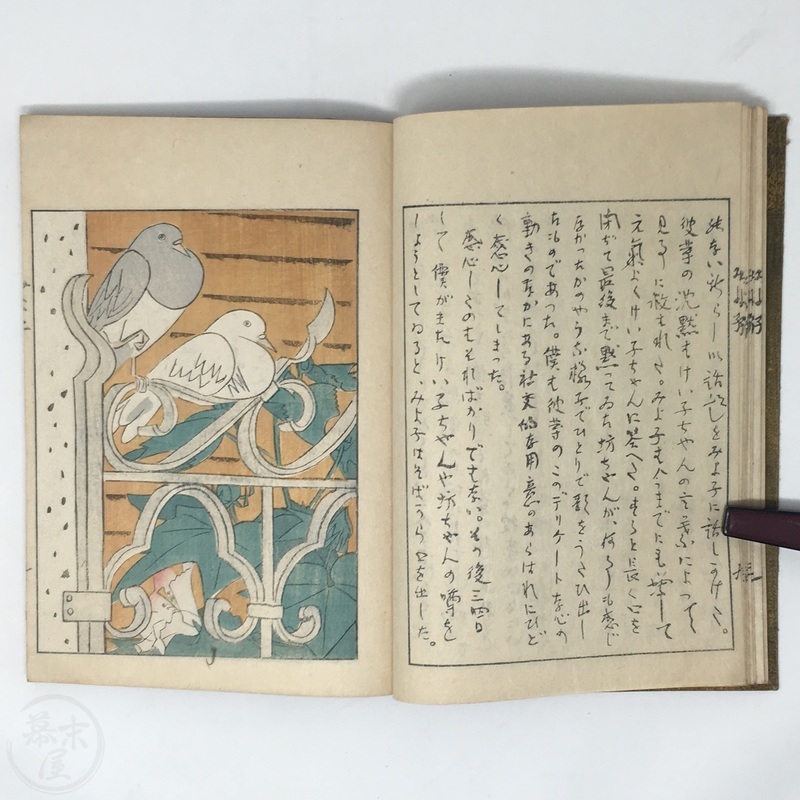 彼等の沈黙もけい子ちゃんの言葉によって
見事に破られた。みよ子も今までにも増して
元氣よくけい子ちゃんに答へた。すると長く口を
閉ぢて最後まで黙ってゐた坊ちゃんが、何事も感じ
なかったかのやうな様子でひとりで歌をうたひ出し
たものであった。僕も彼等のこのデリケートな心の
動きのなかにある社交的な用意のあらはれにひど
く感心してしまった。
感心したのもそればかりでもない。その後三四日
して僕がまたけい子ちゃんや坊ちゃんの噂を
しようとしてゐると、みよ子はそばから口を出した。
幕末屋